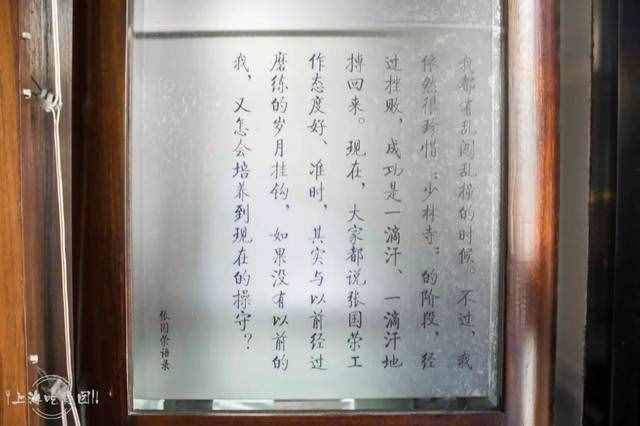 我都有乱闯乱撞的时候。不过，我
依然很珍惜“少林寺”的阶段，经
过挫败，成功是一滴汗、一滴汗地
搏回来。现在，大家都说张国荣工
作态度好、准时，其实与以前经过
磨练的岁月挂钩，如果没有以前的
我，又怎会培养到现在的操守？
张国荣语录